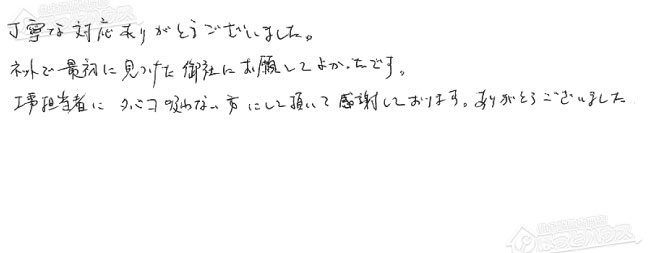 丁寧な対応ありがとうございました。
ネットで最初に見つけた御社にお願いしてよかったです。
工事担当者にタバコ吸わない方にして頂いて感謝しております。ありがとうございました